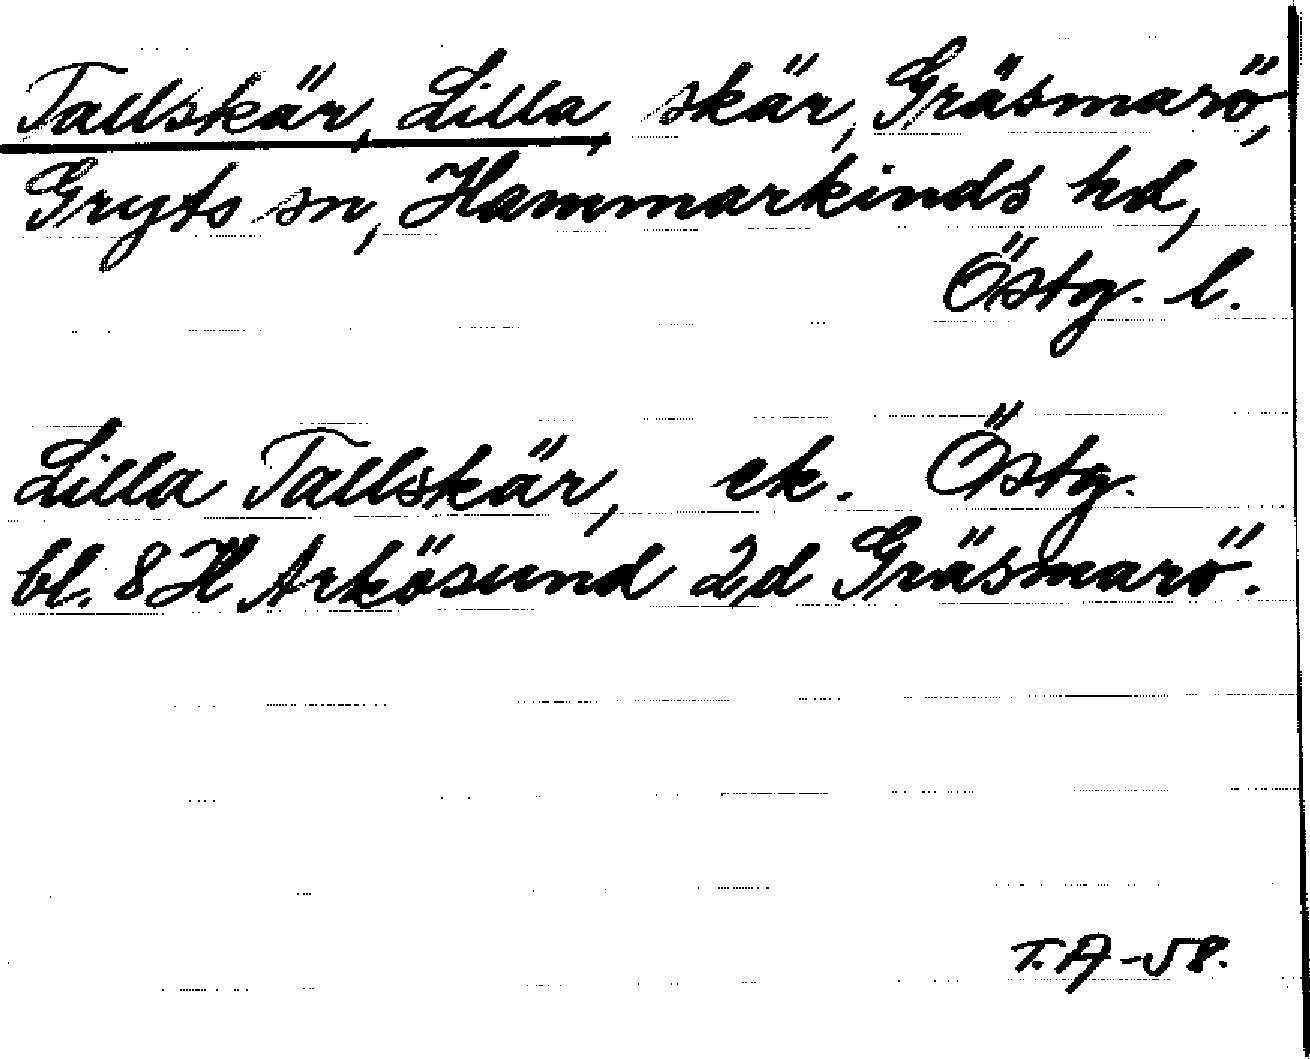 Tallskär, Lilla, skär, Gräsmarö,
Gryts sn, Hammarkinds hd,
Östg. l.
Lilla Tallskär, ek. Östg.
bl. 8H Arkösund 2d Gräsmarö.
T.A-58.